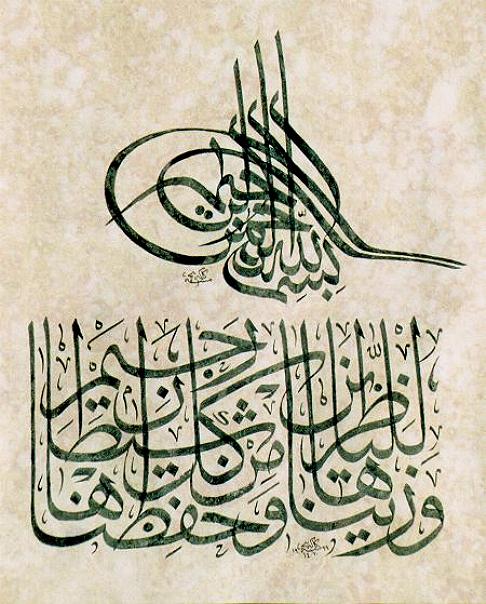 بسم الله الرحمن الرحيم
وزيناها للناظرين وحفظناها من كل شيطان رجيم